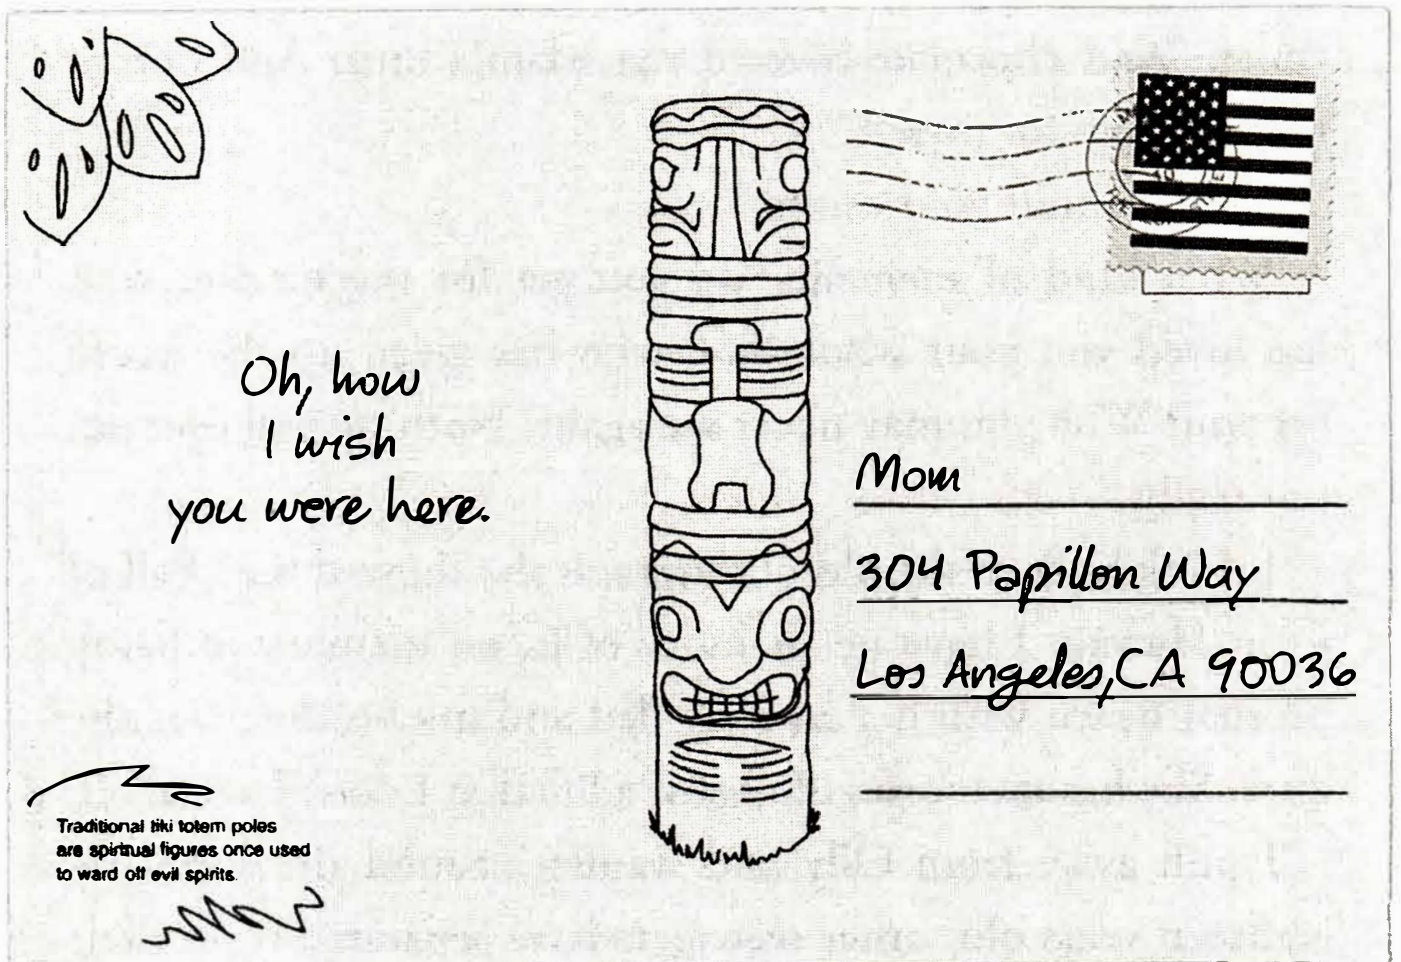 Oh, how
I wish
you were here.
Mom
304 Papillon Way
Los Angeles, CA 90036
Traditional tiki totem poles
are spiritual figures once used
to ward off evil spirits.